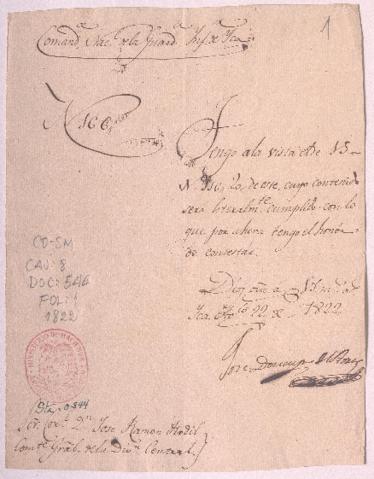 Comand.ª Nac.l de la Guard.ª Ynf.ª de Yca
1
N 166
Tengo a la vista el de
de este, cuyo contenido
será literalm.te cumplido con lo
que por ahora tengo el honor
de contestar.
Dios gue a
Yca 22 de 1822
Jose Domingo
CO-SM
CAJ: 8
DOC: 546
FOL: 1
1822
0344
Sor. Cor.l D.n Jose Ramon Rodil
Com.te Gral. de la Div.n Central